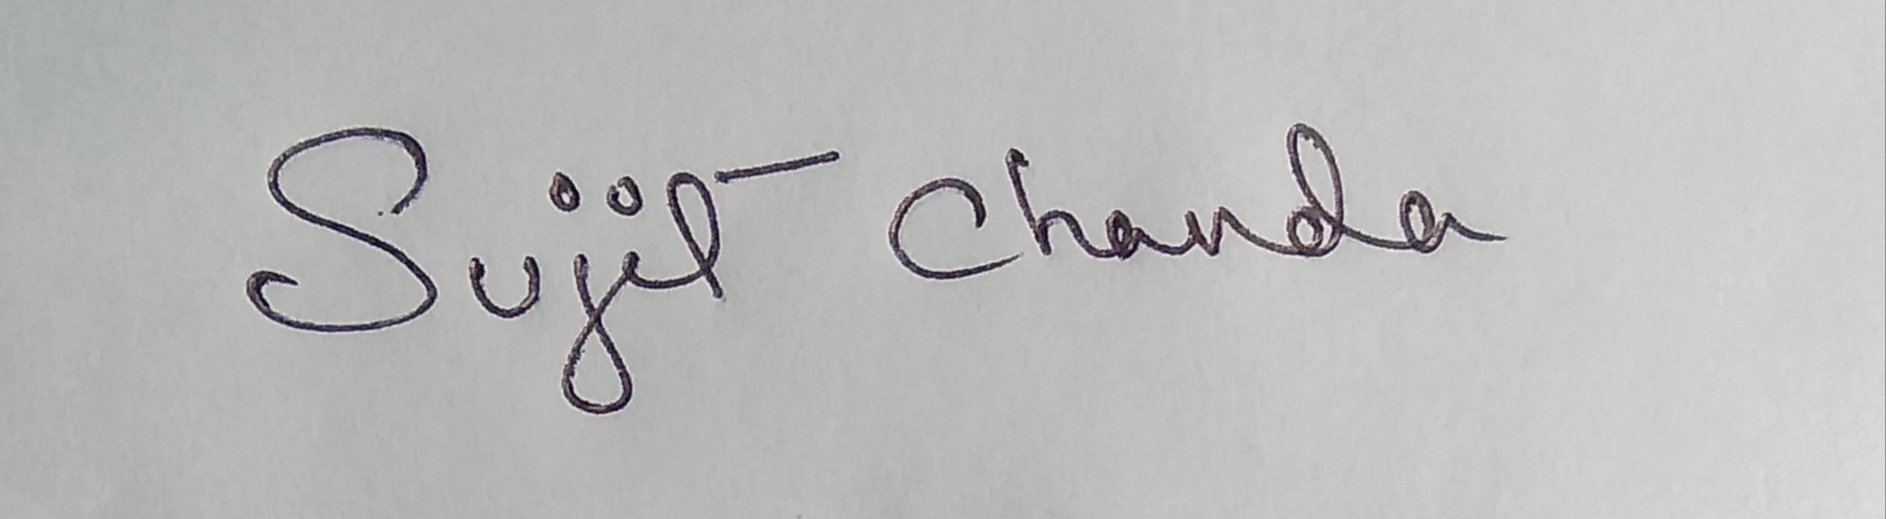 Sujit Chanda